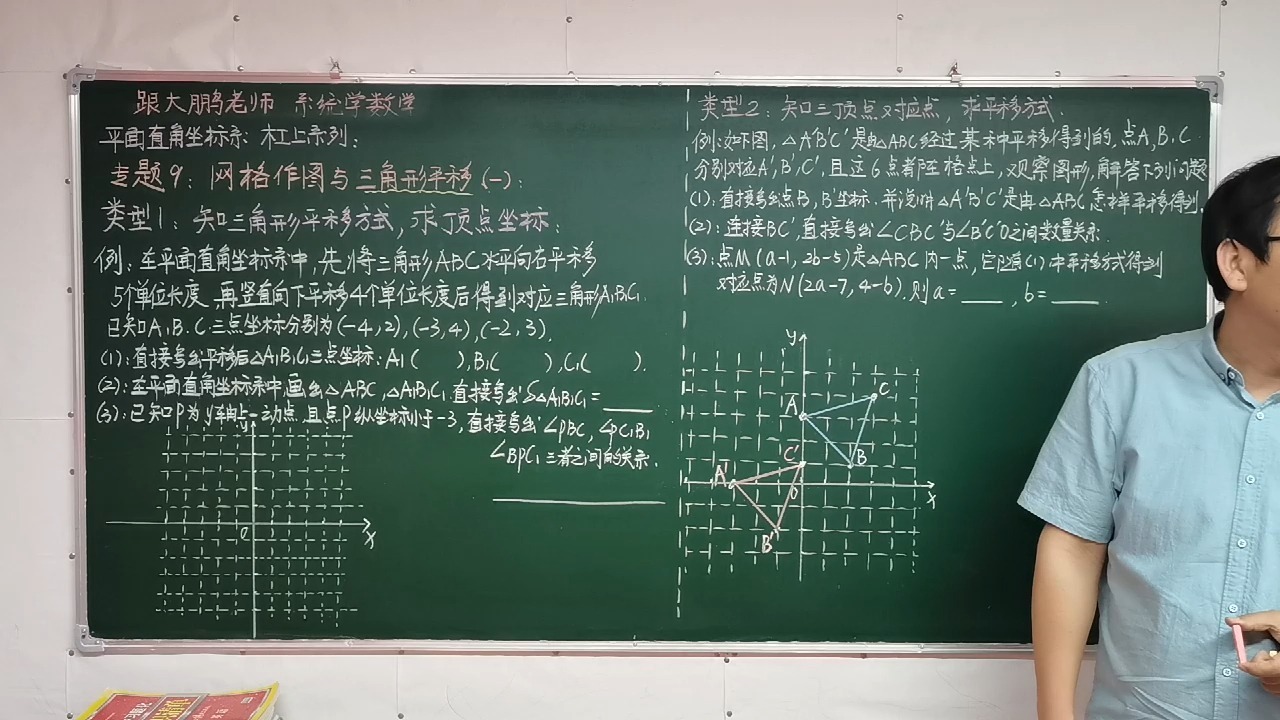 跟大鹏老师 系统学数学
平面直角坐标系 杠上系列:
专题9: 网格作图与三角形平移(一):
类型1: 知三角形平移方式,求顶点坐标:
例: 在平面直角坐标系中,先将三角形ABC水平向右平移
5个单位长度,再竖直向下平移4个单位长度后得到对应三角形A₁B₁C₁.
已知A、B、C三点坐标分别为(-4,2),(-3,4),(-2,3).
(1): 直接写出平移后△A₁B₁C₁三点坐标: A₁( ),B₁( ),C₁( ).
(2): 在平面直角坐标系中,画出△ABC,△A₁B₁C₁.直接写出S△A₁B₁C₁=____
(3): 已知P为y轴上一动点,且点P纵坐标小于-3,直接写出∠PBC,∠PC₁B₁
∠BPC₁三者之间的关系.
y
o
x
类型2: 知三顶点对应点,求平移方式.
例: 如下图,△A'B'C'是由△ABC经过某种平移得到的,点A,B,C
分别对应A',B',C',且这6点都在格点上,观察图形,解答下列问题
(1): 直接写出点B,B'坐标.并说明△A'B'C'是由△ABC怎样平移得到.
(2): 连接BC',直接写出∠CBC'与∠B'C'O之间数量关系.
(3): 点M(a-1,2b-5)是△ABC内一点,它随(1)中平移方式得到
对应点为N(2a-7,4-b).则a=____,b=____.
y
C
A
B
C'
A'
O
x
B'